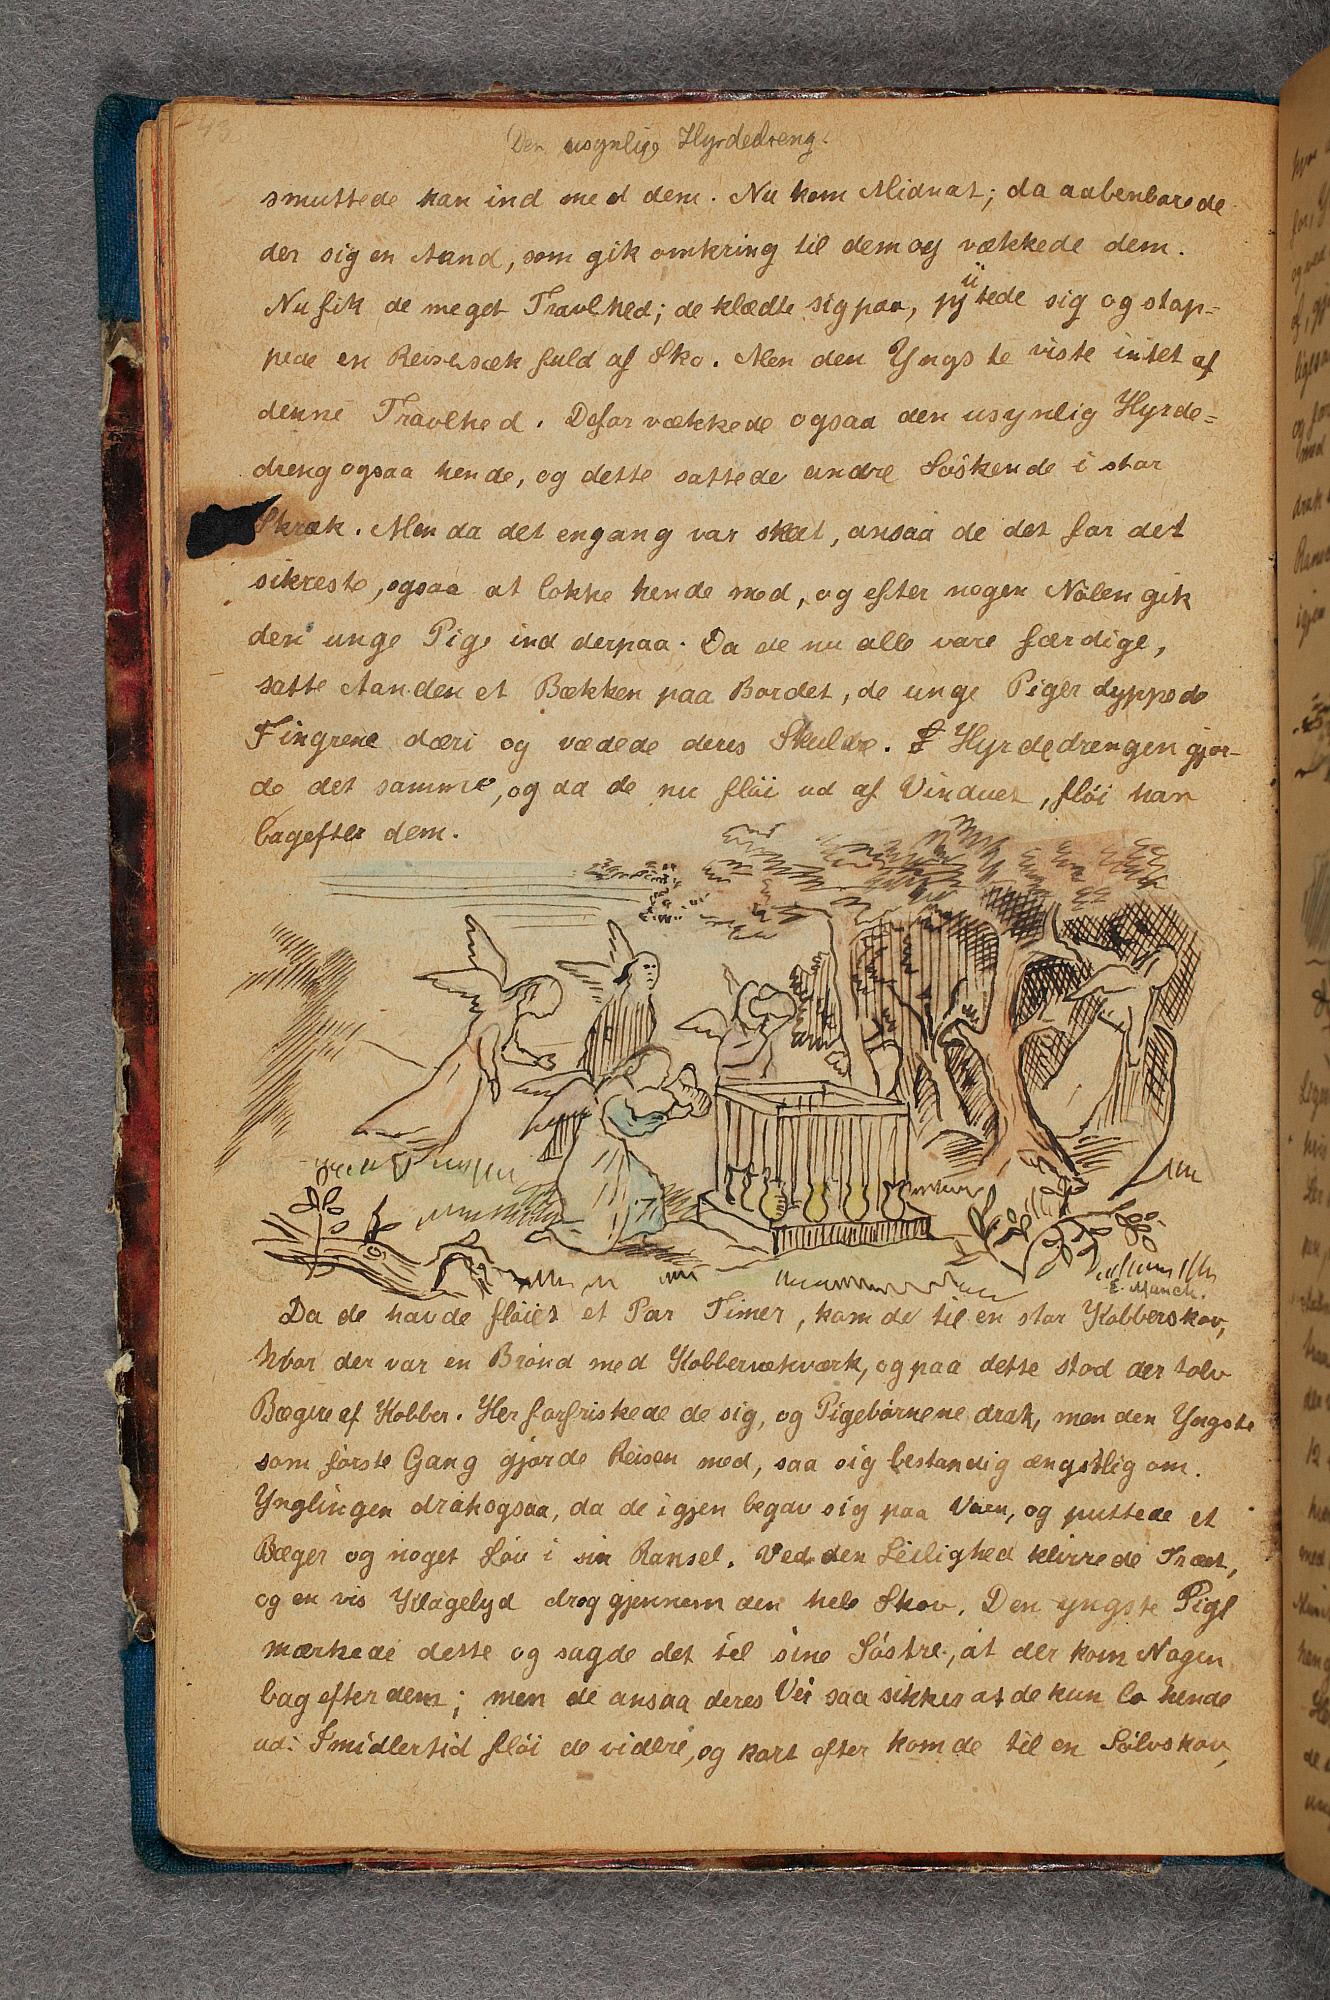 43
Den usynlige Hyrdedreng.
smuttede han ind med dem. Nu kom Midnat; da aabenbarede
der sig en Aand, som gik omkring til dem og vækkede dem.
Nu fik de meget Travlhed; de klædte sig paa, pyntede sig og stop-
pede en Reisesæk fuld af Sko. Men den Yngste viste intet af
denne Travlhed. Defor vækkede ogsaa den usynlig Hyrde=
dreng ogsaa hende, og dette sattede andre Söskende i stor
Skræk. Men da det engang var skeet, ansaa de det for det
sikreste, ogsaa at lokke hende med, og efter nogen Nölen gik
den unge Pige ind derpaa. Da de nu alle vare færdige,
satte Aanden et Bækken paa Bordet, de unge Piger dyppede
Fingrene dæri og vædede deres Skuldre. Hyrdedrengen gjor-
de det samme, og da de nu flöi ud af Vinduet, flöi han
bagefter dem.
E. Munch.
Da de havde flöiet et Par Timer, kom de til en stor Kobberskov,
hvor der var en Brönd med Kobberrækværk, og paa dette stod der tolv
Bægere af Kobber. Her forfriskede de sig, og Pigebörnene drak, men den Yngste
som förste Gang gjorde Reisen med, saa sig bestandig ængstlig om.
Ynglingen drak ogsaa, da de igjen begav sig paa Veien, og puttede et
Bæger og noget Löv i sin Ransel. Ved den Leilighed klirrede Træet,
og en vis Klagelyd drog gjennem den hele Skov. Den yngste Pige
mærkede dette og sagde det til sine Söstre, at der kom Nogen
bag efter dem; men de ansaa deres Vei saa sikker at de kun lo hende
ud. Imidlertid flöi de videre, og kort efter kom de til en Sölvskov,